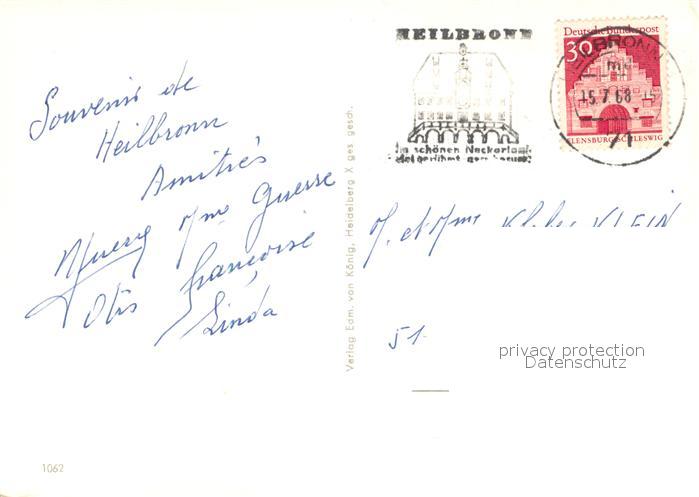 Souvenir de
Heilbronn
Amitiés
Mme Guerre
Otis Françoise
Linda
Verlag Edm. von König, Heidelberg X ges. gesch.
1062
HEILBRONN
im schönen Neckarland
viel gerühmt
Deutsche Bundespost
30
FLENSBURG/SCHLESWIG
HEILBRONN
15.7.68
71
M. et Mme KLEIN
51.
privacy protection
Datenschutz